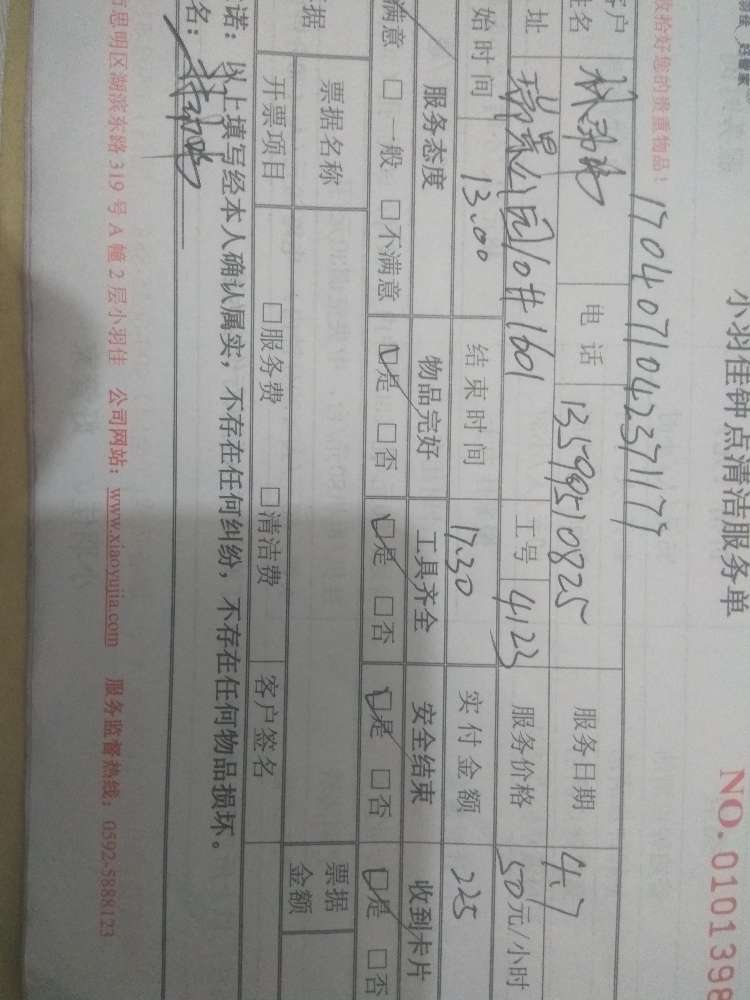 小羽佳钟点清洁服务单
NO. 0101398
收拾好您的贵重物品!
17040710423717
姓名 电话 13599510825 服务日期 4.7
址 瑞景公园10#1601 工号 4123 服务价格 50元/小时
始时间 13.00 结束时间 17.30 实付金额 225
服务态度 物品完好 工具齐全 安全结束 收到卡片
满意 □一般 □不满意 □是 □否 □是 □否 □是 □否 □是 □否
据 票据名称 票据金额
开票项目 □服务费 □清洁费 客户签名
诺:以上填写经本人确认属实,不存在任何纠纷,不存在任何物品损坏。
名:
市思明区湖滨东路319号A幢2层小羽佳 公司网站:www.xiaoyujia.com 服务监督热线:0592-5888123